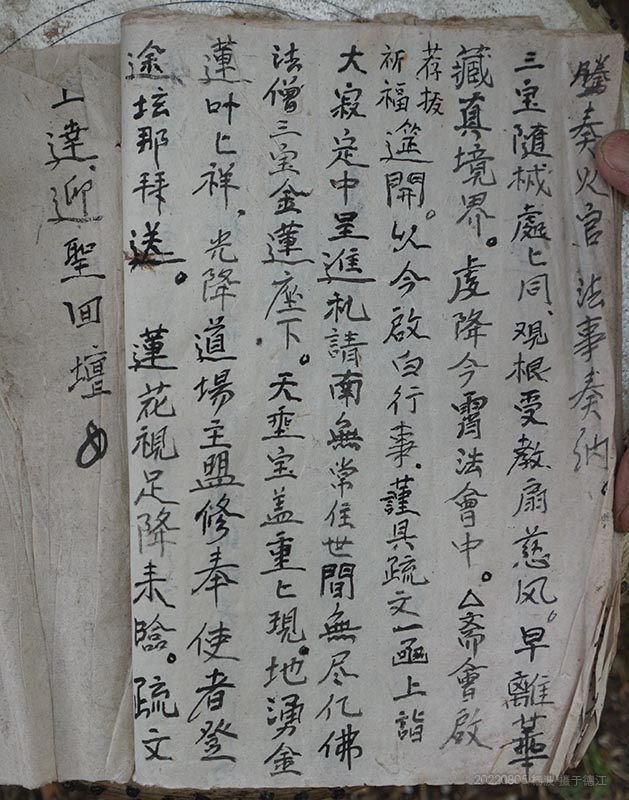 謄奏火官法事奏納。
三宝随械處匕同、观根受教扇慈风。早離華
藏真境界。虔降今霄法會中。△斋會啟
荐拔
祈福
筵開。以今啟白行事、謹具疏文一函上詣
大寂定中呈進札請南無常住世間無尽亿佛
法僧三宝金蓮座下。天垂宝盖重匕現。地湧金
蓮叶匕祥、光降道場主盟修奉使者登
途坛那拜送。蓮花視足降来臨。疏文
上達、迎聖回壇
20220805 杨波 摄于德江